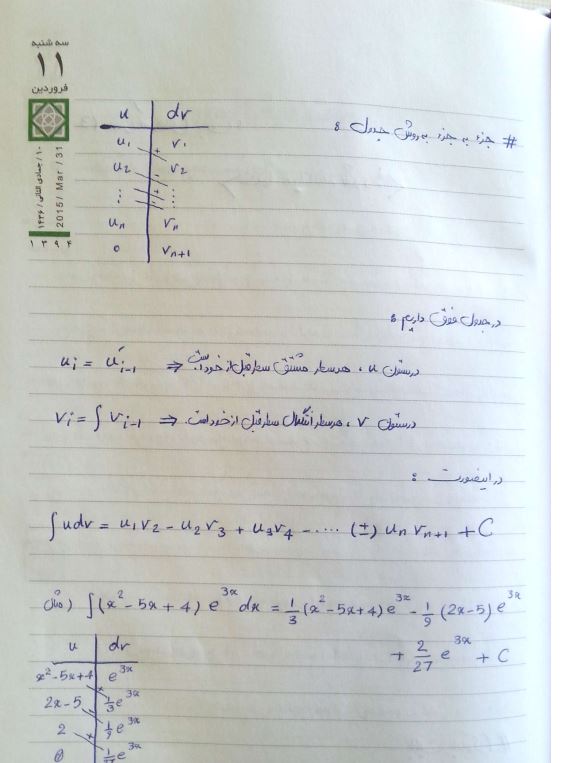 سه شنبه
۱۱
فروردین
2015/ Mar / 31
۱۰ / جمادی الثانی / ۱۴۳۶
۱۳۹۴
# جزء به جزء به روش جدول :
u dv
u₁ v₁
+
u₂ v₂
-
... ...
uₙ vₙ
0 vₙ₊₁
در جدول فوق داریم :
uᵢ = u′ᵢ₋₁ ⇐ در ستون u ، هر سطر مشتق سطر قبل از خود است
vᵢ = ∫ vᵢ₋₁ ⇐ در ستون v ، هر سطر انتگرال سطر قبل از خود است.
در اینصورت :
∫ u dv = u₁v₂ - u₂v₃ + u₃v₄ - ... (±) uₙ vₙ₊₁ + C
مثال) ∫(x² - 5x + 4) e³ˣ dx = 1/3 (x² - 5x + 4) e³ˣ - 1/9 (2x - 5) e³ˣ
+ 2/27 e³ˣ + C
u dv
x² - 5x + 4 e³ˣ
+
2x - 5 1/3 e³ˣ
-
2 1/9 e³ˣ
+
0 1/27 e³ˣ